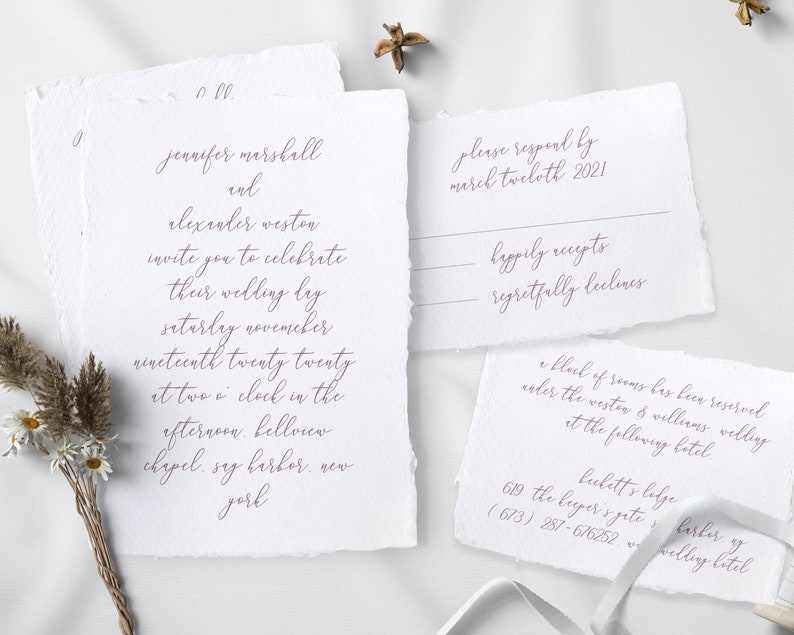 jennifer marshall
and
alexander weston
invite you to celebrate
their wedding day
saturday novemeber
nineteenth twenty twenty
at two o' clock in the
afternoon. bellview
chapel. sag harbor. new
york
please respond by
march twelvth 2021
happily accepts
regretfully declines
a block of rooms has been reserved
under the weston & williams wedding
at the following hotel.
beckett's lodge
619 the keeper's gate harbor ny
(673) 287-676252. wedding hotel